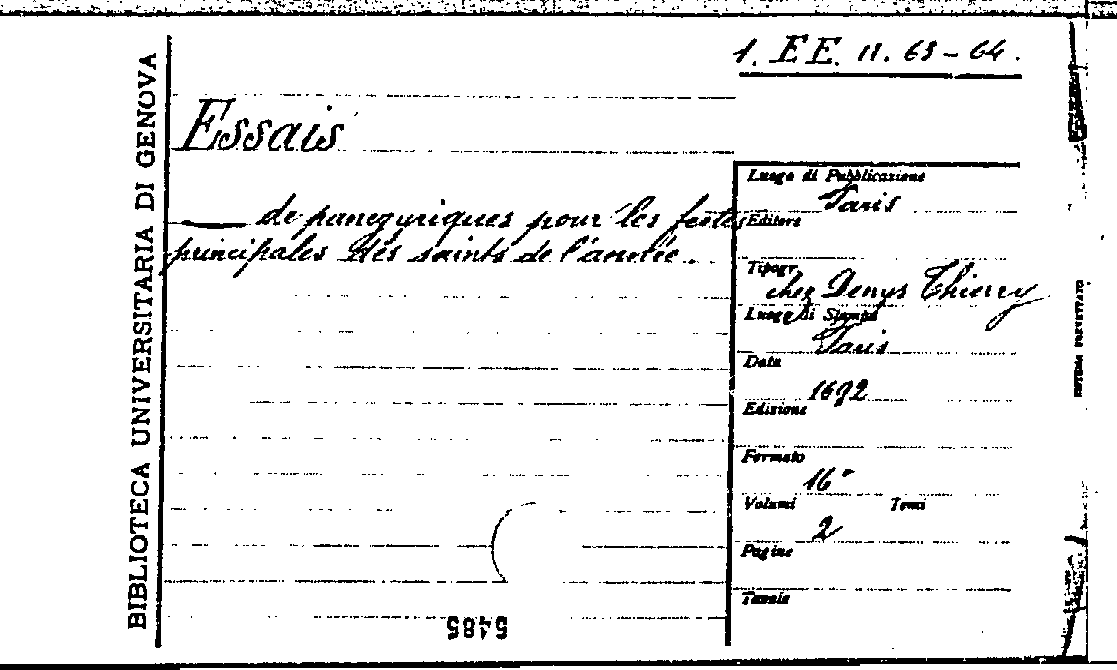 1. EE. 11. 63-64.
BIBLIOTECA UNIVERSITARIA DI GENOVA
Essais
de panegyriques pour les festes
principales des saints de l'année.
Luogo di Pubblicazione
Paris
Editore
Tipogr.
chez Denys Thierry
Luogo di Stampa
Paris
Data
1692
Edizione
Formato
16°
Volumi Tomi
2
Pagine
Tavole
5485